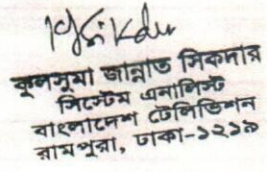 কুলসুমা জান্নাত সিকদার
সিস্টেম এনালিস্ট
বাংলাদেশ টেলিভিশন
রামপুরা, ঢাকা-১২১৯